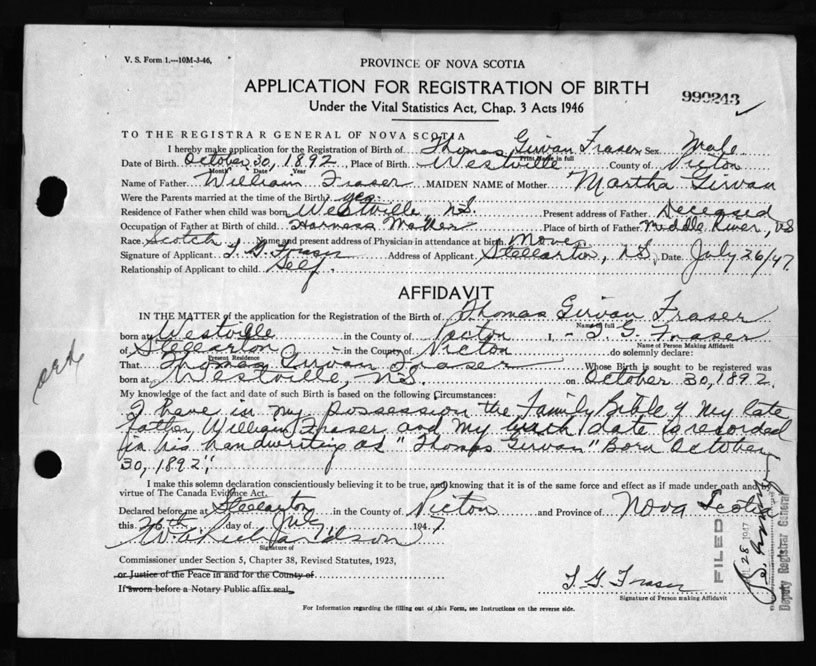 V. S. Form 1.—10M-3-46,
PROVINCE OF NOVA SCOTIA
APPLICATION FOR REGISTRATION OF BIRTH
990243
Under the Vital Statistics Act, Chap. 3 Acts 1946
TO THE REGISTRAR GENERAL OF NOVA SCOTIA
I hereby make application for the Registration of Birth of Thomas Girvan Fraser Sex Male
Print Name in full
Date of Birth October 30, 1892, Place of Birth Westville County of Pictou
Month Date Year
Name of Father William Fraser MAIDEN NAME of Mother Martha Girvan
Were the Parents married at time of the Birth? yes
Residence of Father when child was born Westville N.S. Present address of Father Deceased
Occupation of Father at Birth of child Harness Maker Place of birth of Father Middle River, NS
Race Scotch Name and present address of Physician in attendance at birth
Signature of Applicant T. G. Fraser Address of Applicant Stellarton, N.S. Date July 26/47
Relationship of Applicant to child Self.
AFFIDAVIT
IN THE MATTER of the application for the Registration of Birth of Thomas Girvan Fraser
Name in full
born at Westville in the County of Pictou I, T. G. Fraser
Name of Person Making Affidavit
of Stellarton in the County of Pictou do solemnly declare:
Present Residence
That Thomas Girvan Fraser Whose Birth is sought to be registered was
born at Westville, N.S. on October 30, 1892.
My knowledge of the fact and date of such Birth is based on the following Circumstances:
I have in my possession the Family Bible of my late
father, William Fraser and my birth date is recorded
in his handwriting as "Thomas Girvan" Born October
30, 1892".
I make this solemn declaration conscientiously believing it to be true, and knowing that it is of the same force and effect as if made under oath and by
virtue of The Canada Evidence Act.
Declared before me at Stellarton in the County of Pictou and Province of Nova Scotia
this 26th day of July 1947
W. A. Richardson
Signature of
Commissioner under Section 5, Chapter 38, Revised Statutes, 1923,
or Justice of the Peace in and for the County of
If sworn before a Notary Public affix seal
T. G. Fraser
Signature of Person making Affidavit
For Information regarding the filling out of this Form, see Instructions on the reverse side.
FILED
28 1947
Deputy Registrar General